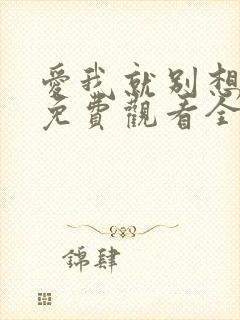 愛我就別想
免費觀看全
錦肆